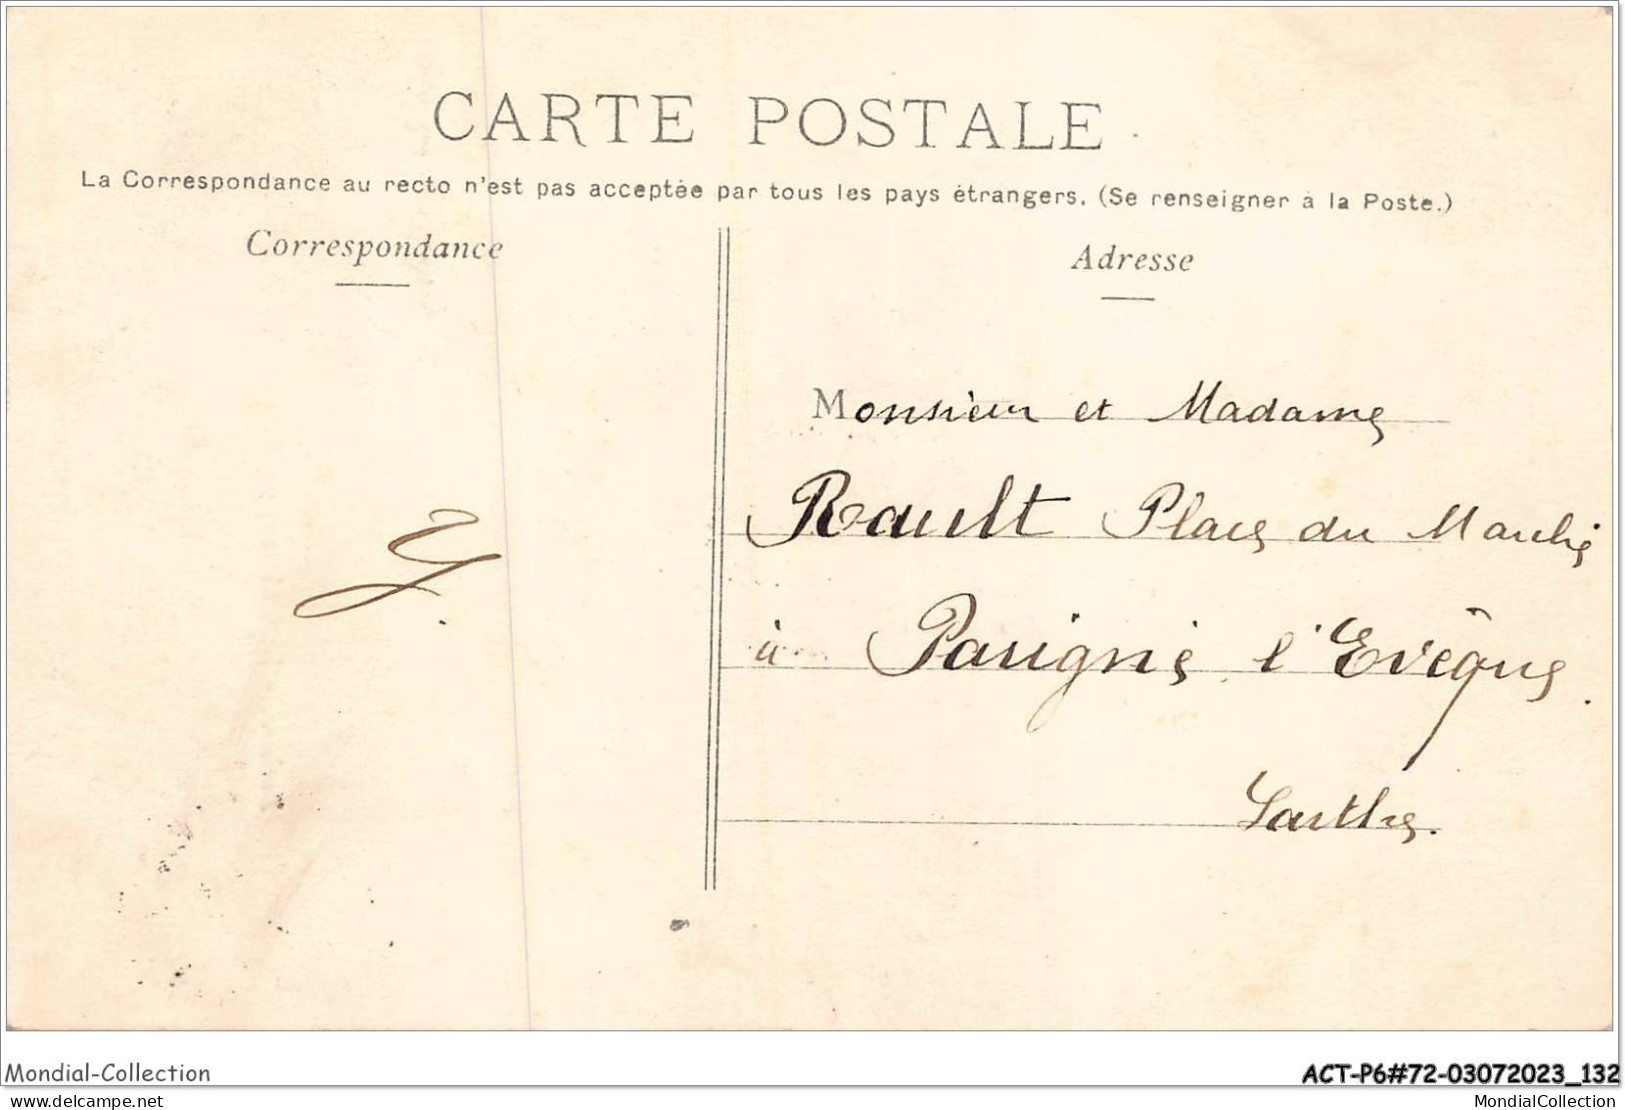 CARTE POSTALE
La Correspondance au recto n'est pas acceptée par tous les pays étrangers. (Se renseigner à la Poste.)
Correspondance
Adresse
Monsieur et Madame
Rault Place du Marché
Y.
à Parigné l'Evêque.
Sarthe.
Mondial-Collection
ACT-P6#72-03072023_132
delcampe.net
MondialCollection